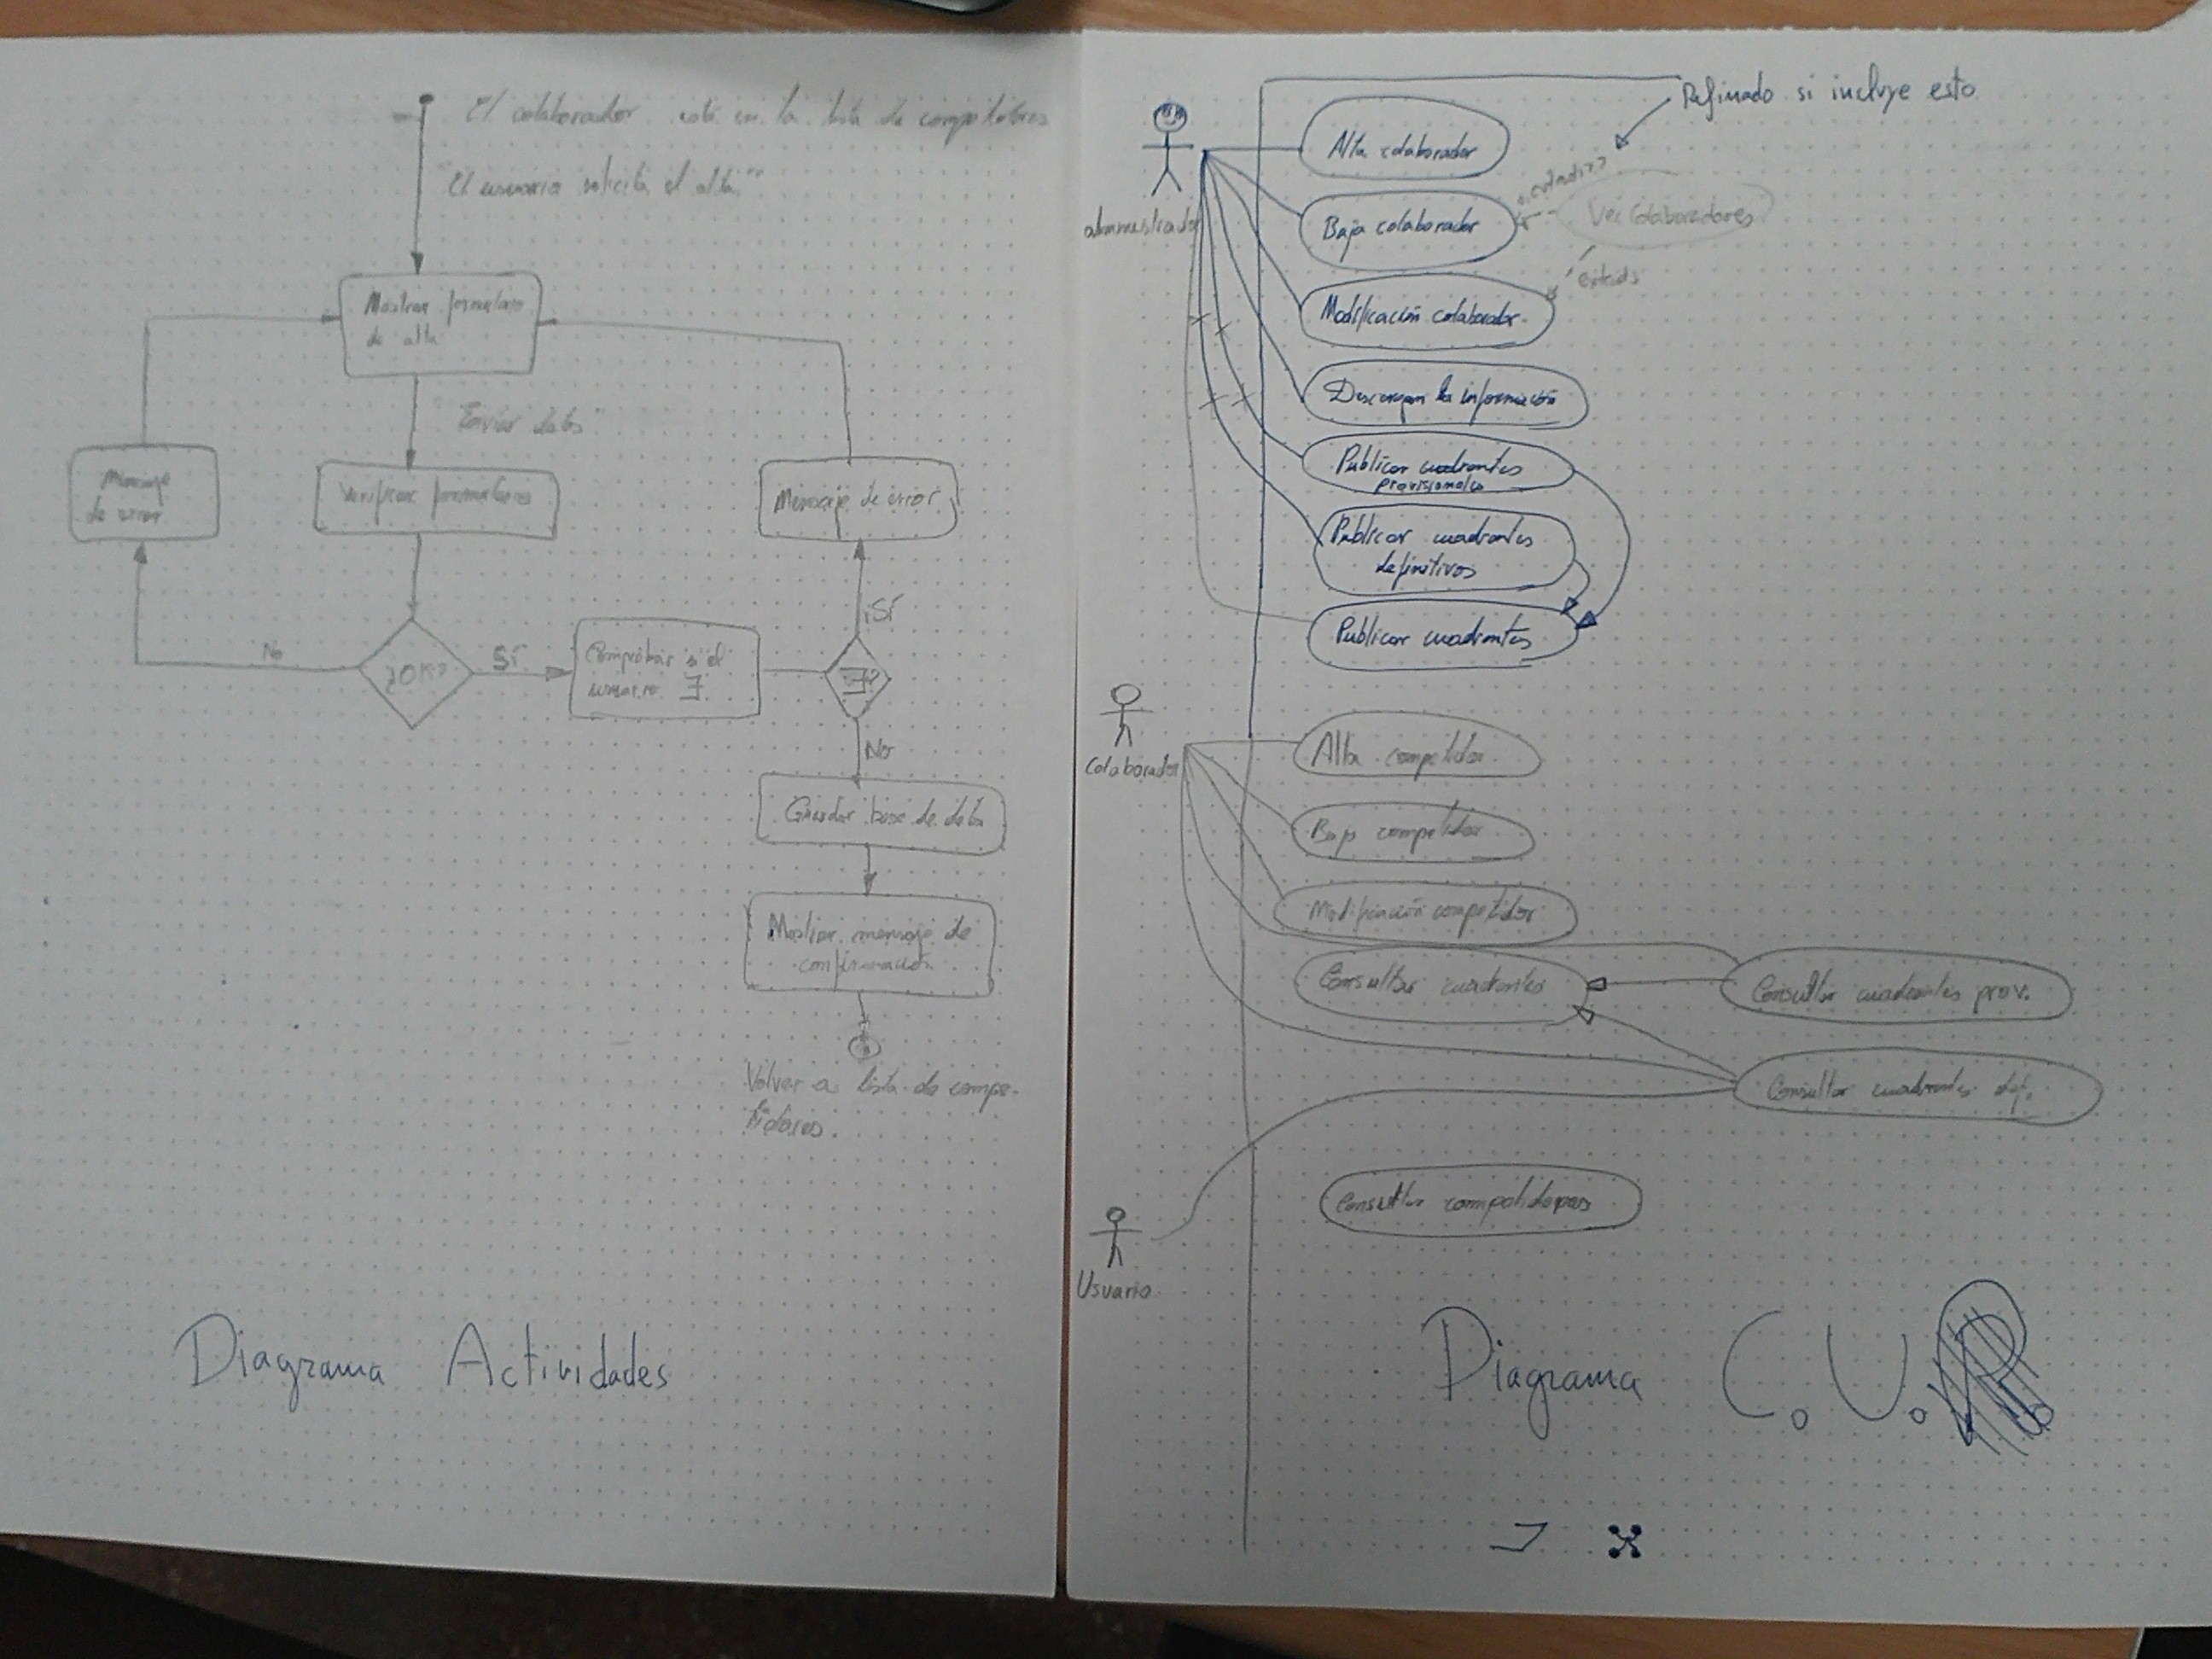 El colaborador está en la lista de competidores
"El usuario solicita el alta"
Mostrar formulario
de alta
"Enviar datos"
Mensaje
de error
Verificar formulario
Mensaje de error
¿OK?
No
SÍ
Comprobar si el
usuario ∃
∃?
SÍ
No
Guardar base de datos
Mostrar mensaje de
confirmación
Volver a lista de compe-
tidores.
Diagrama Actividades
Refinado si incluye esto
administrador
Alta colaborador
Baja colaborador
<<extends>>
Ver Colaboradores
extends
Modificación colaborador
Descargar la información
Publicar cuadrantes
provisionales
Publicar cuadrantes
definitivos
Publicar cuadrantes
Colaborador
Alta competidor
Baja competidor
Modificación competidor
Consultar cuadrantes
Consultar cuadrantes prov.
Consultar cuadrantes def.
Consultar competidores
Usuario
Diagrama C.U.